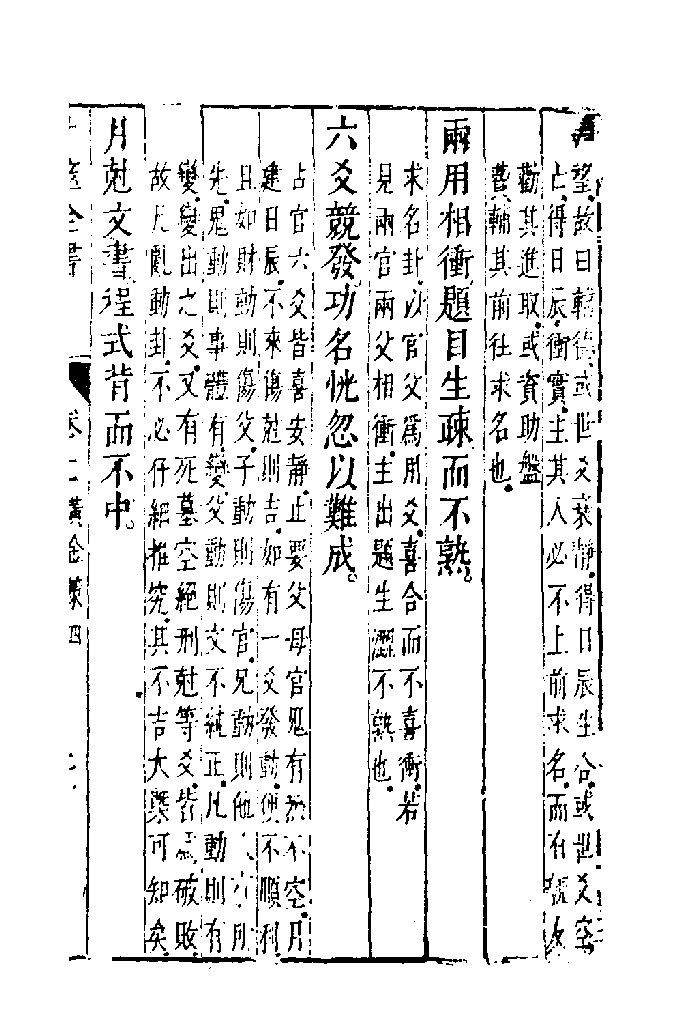 望故曰輔德或世爻衰靜得日辰生合或世爻空
亡得日辰衝實主其人必不上前求名而有
勸其進取或資助盤
費輔其前往求名也
兩用相衝題目生疎而不熟
求名卦以官父爲用爻喜合而不喜衝若
見兩官兩父相衝主出題生澀不熟也
六爻競發功名恍忽以難成
占官六爻皆喜安靜止要父母官鬼有氣不空月
建日辰不來傷尅則吉如有一爻發動便不順利
且如財動則傷父子動則傷官兄動則他人
先鬼動則事體有變父動則文不純正凡動則有
變變出之爻又有死墓空絕刑尅等爻皆爲破敗
故凡亂動卦不必仔細推究其不吉大槩可知矣
月尅文書程式背而不中
全書
卷 黃金策四